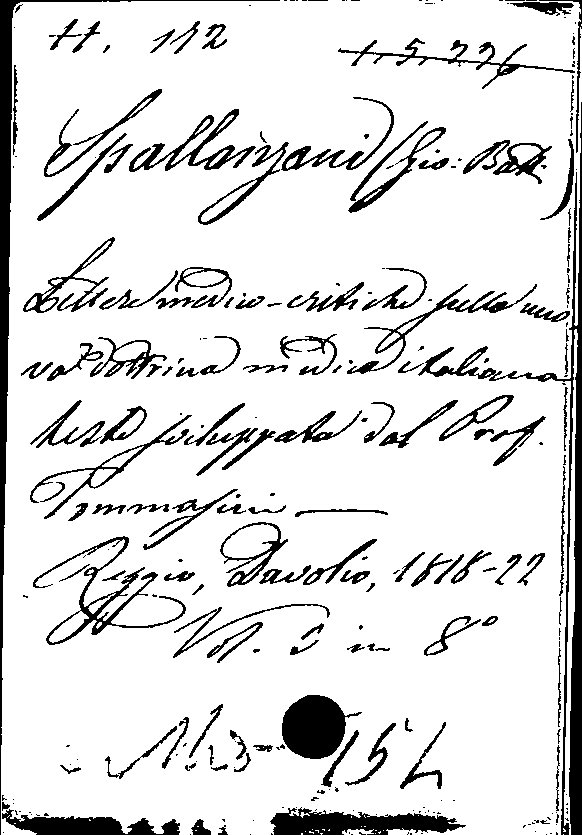 H. 172
1. 5. 226
Spallanzani (Gio: Batt.)
Lettere medico-critiche sulla nuo
va dottrina medica italiana
testè sviluppata dal Prof.
Tommasini —
Reggio, Davolio, 1818-22
Vol. 3 in 8°